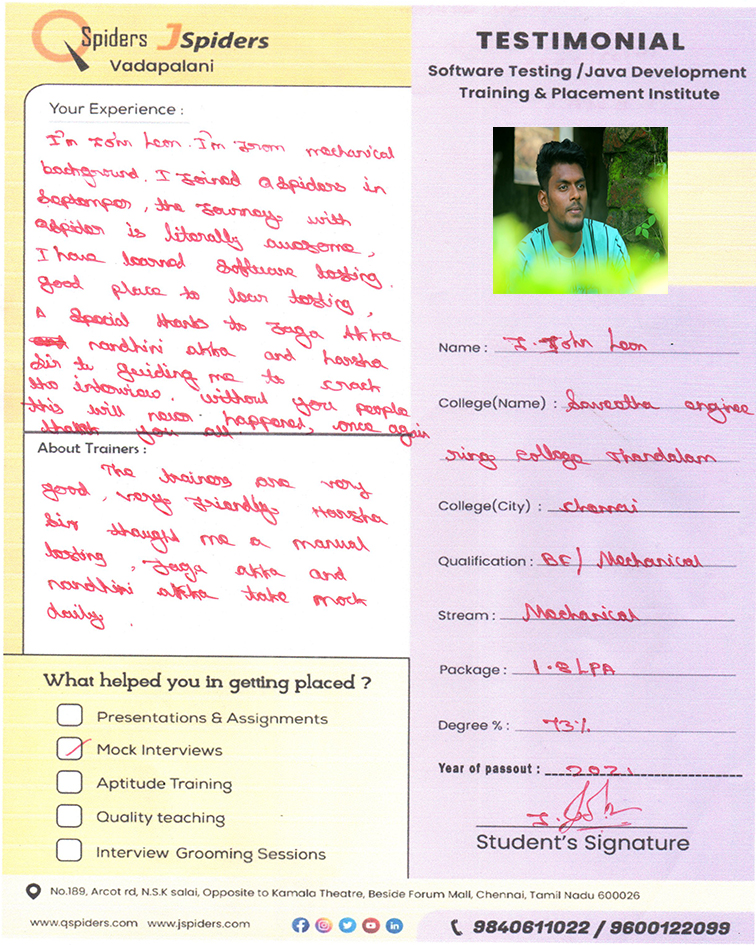 QSpiders JSpiders
Vadapalani
Your Experience :
I'm John Leon. I'm from mechanical
background. I Joined Qspiders in
Septamper, the Journey with
Qspider is literally awesome,
I have learned Software testing.
good place to lear testing,
A Special thanks to Jaga Akka
nandhini akka and harsha
Sir to guiding me to crack
the interview. without you people
this will never happened, once again
thank you all.
About Trainers :
The trainers are very
good, very friendly. Harsha
Sir thought me a manual
testing, Jaga akka and
nandhini akka take mock
daily.
What helped you in getting placed ?
Presentations & Assignments
Mock Interviews
Aptitude Training
Quality teaching
Interview Grooming Sessions
TESTIMONIAL
Software Testing /Java Development
Training & Placement Institute
Name : J. John Leon
College(Name) : Saveetha enginee
ring College Thandalam
College(City) : Chennai
Qualification : BE/ Mechanical
Stream : Mechanical
Package : 1.8 LPA
Degree % : 73%
Year of passout : 2021
Student's Signature
No.189, Arcot rd, N.S.K salai, Opposite to Kamala Theatre, Beside Forum Mall, Chennai, Tamil Nadu 600026
www.qspiders.com www.jspiders.com
9840611022 / 9600122099